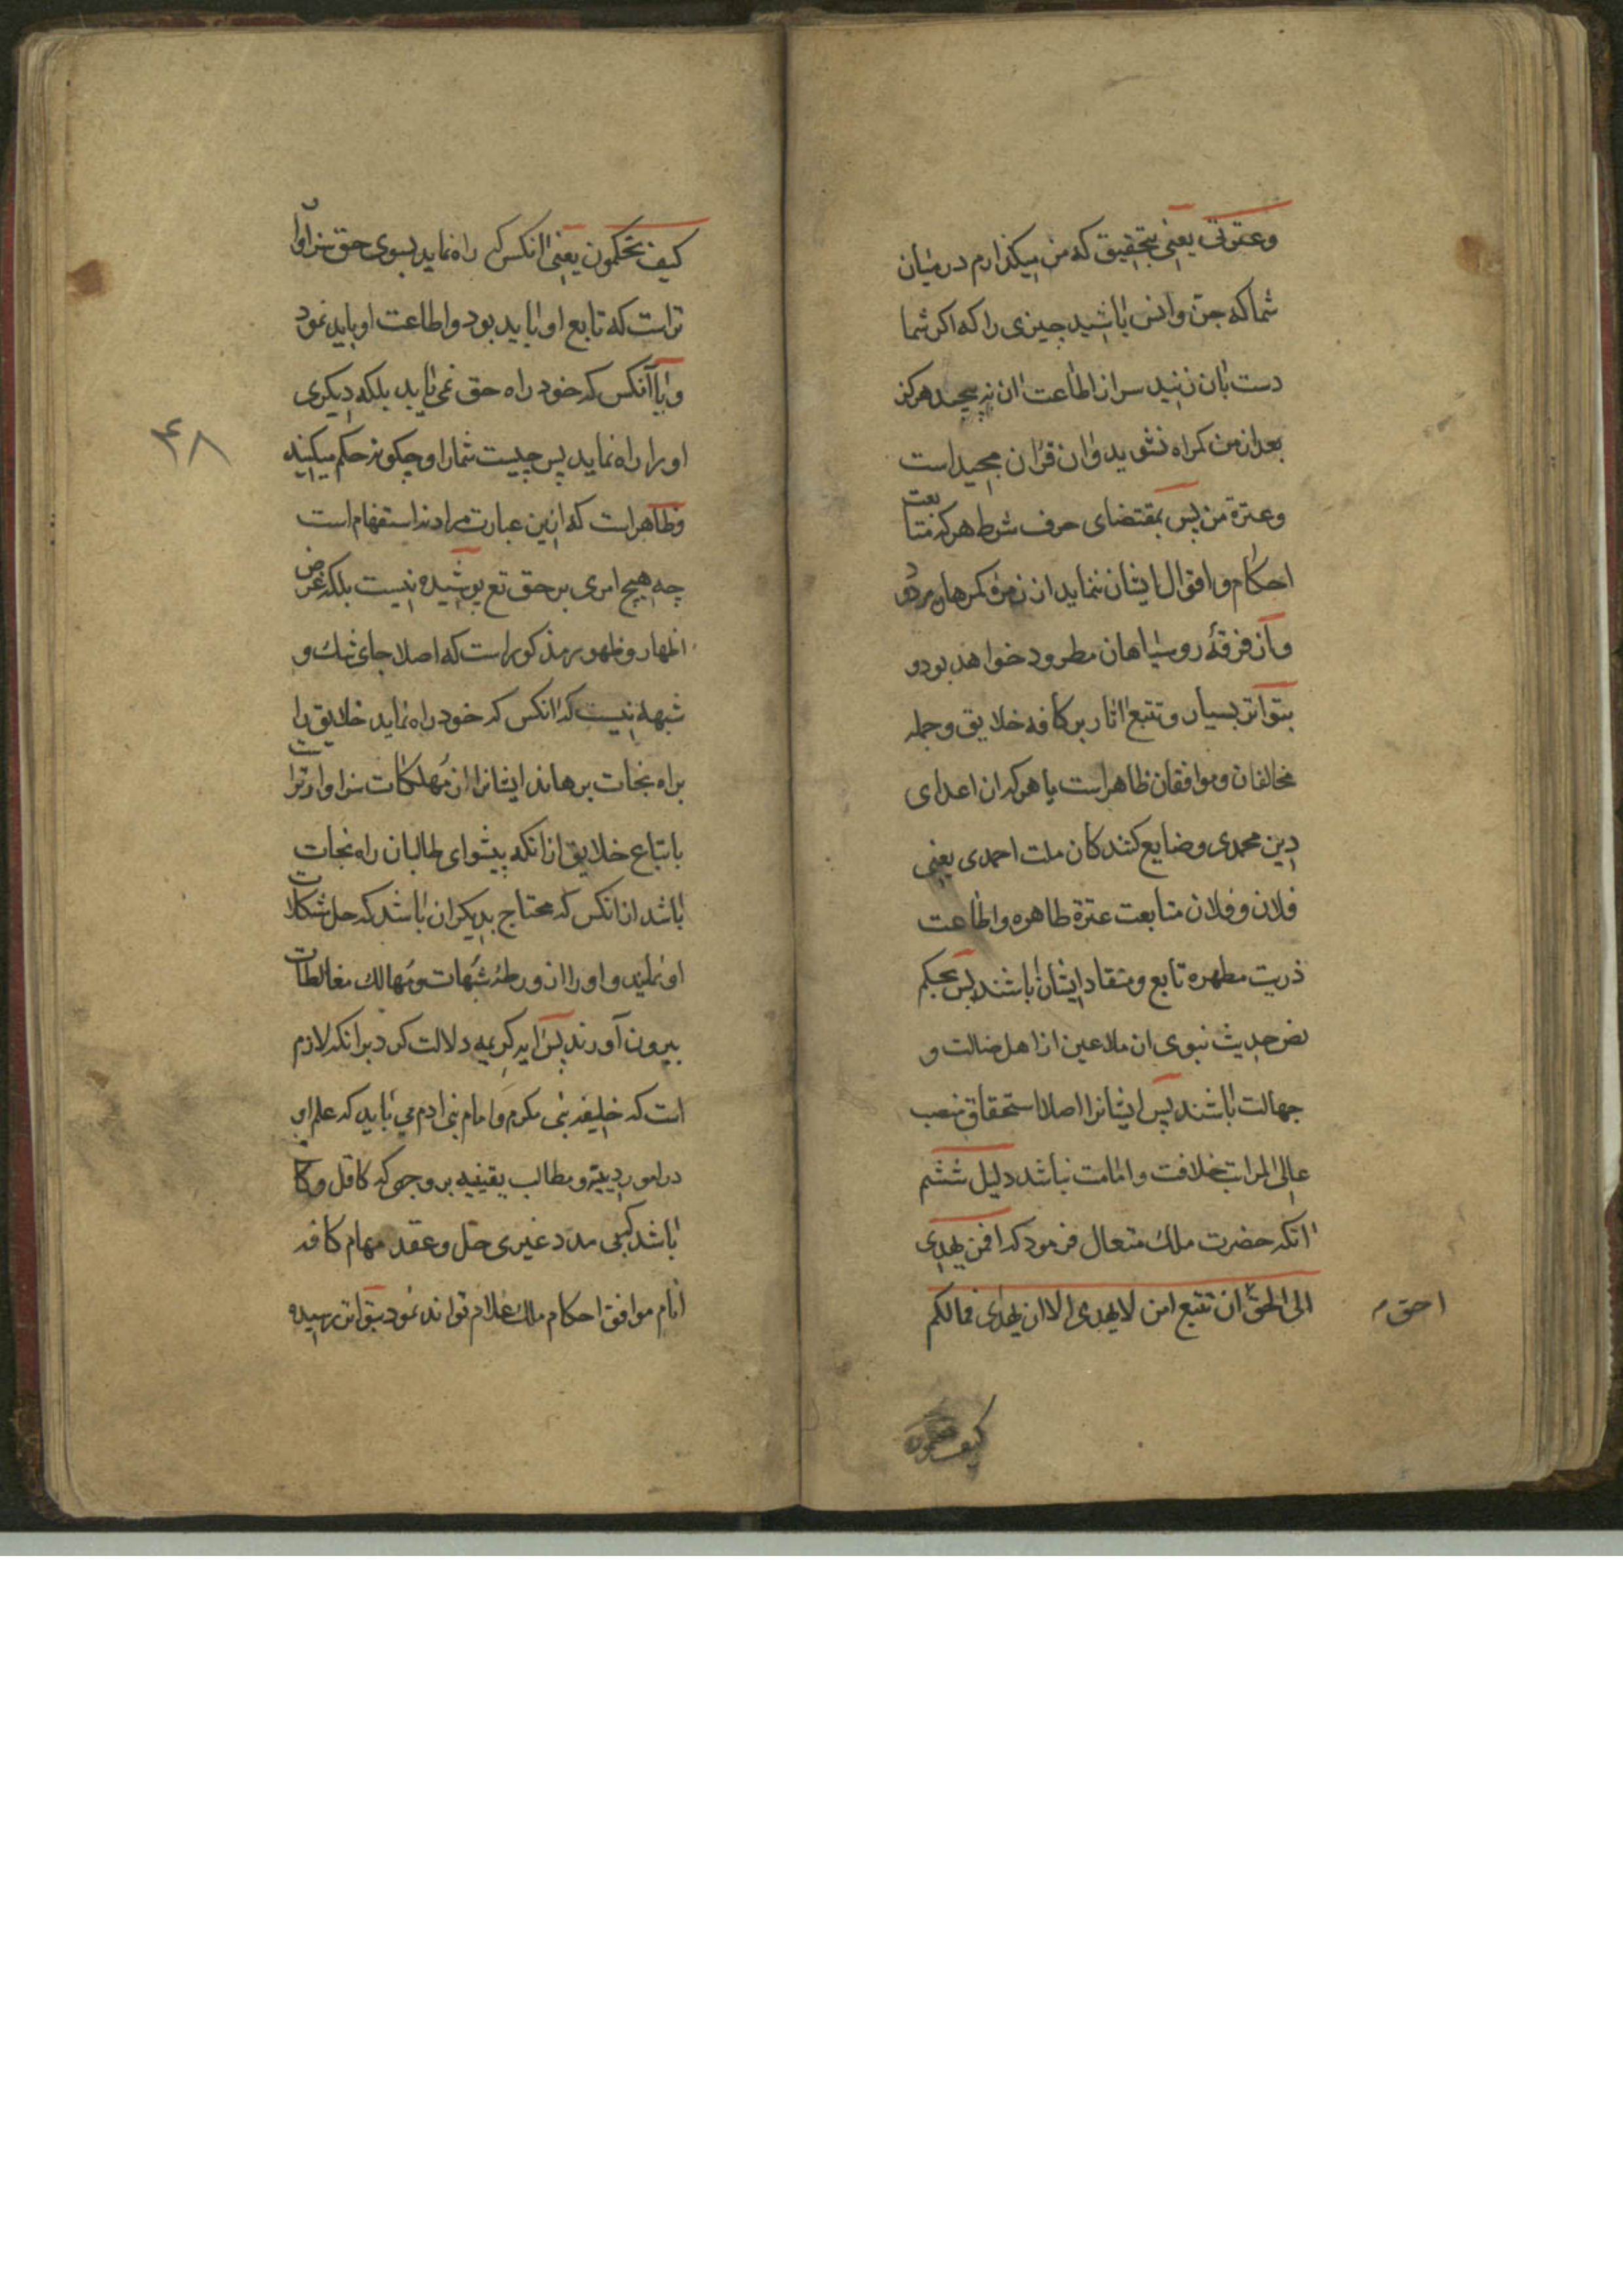 وعترتی یعنی بتحقیق که من میکذارم در میان
شما که جن وانس باشید چیزی را که اکر شما
دست بان زنید سر از اطاعت ان نپیچید هرکز
بعد از من کمراه نشوید وان قران مجیداست
وعترة من پس بمقتضای حرف شرط هرکه متابعت
احکام و اقوال ایشان ننماید از زمرۀ کمرهان مردود
وآن فرقۀ روسیاهان مطرود خواهند بود و
بتواتر بسیار و تتبع اثار بر کافه خلایق و جمله
مخالفان وموافقان ظاهراست یا هرکه از اعدای
دین محمدی وضایع کنندکان ملت احمدی یعنی
فلان وفلان متابعت عترة طاهره واطاعت
ذریت مطهره تابع ومنقاد ایشان باشند پس بحکم
نص حدیث نبوی ان ملاعین از اهل ضالت و
جهالت باشند پس ایشانرا اصلا استحقاق منصب
عالی المراتب خلافت وامامت نباشد دلیل ششم
انکه حضرت ملك متعال فرمود که افمن یهدی
الی الحق ان تتبع امن لا یهدی الا ان یهدی فمالکم
احق
کیف تحکمون
کیف تحکمون یعنی انکس که راه نماید بسوی حق سزاوار
تراست که تابع او باید بود واطاعت او باید نمود
ویا آنکس که خود راه حق نمی یابد بلکه دیکری
او را راه نماید پس چیست شمارا و چکونه حکم میکنید
وظاهراست که ازین عبارت مراد نه استفهام است
چه هیچ امری بر حق تع پوشیده نیست بلکه غرض
اظهار و ظهور مذکور است که اصلا جای شك و
شبهه نیست که انکس که خود راه نماید خلایق را
براه نجات برهاند ایشانرا از مهلکات سزاوارتراست
باتباع خلایق از انکه پیشوای طالبان راه نجات
باشد از انکس که محتاج بدیکران باشد که حل مشکلات
او نمایند و او را از ورطۀ شبهات ومهالك مغالطات
بیرون آورند پس ایه کریمه دلالت کرد بر انکه لازم
است که خلیفه نبی مکرم و امام بنی ادم می باید که علم او
در امور دینیه و مطالب یقینیه بر وجهی که کافل و کا
باشد کبی مدد غیری حل وعقد مهام کافه
انام موافق احکام ملك علام تواند نمود بتواتر رسیده
۴۸